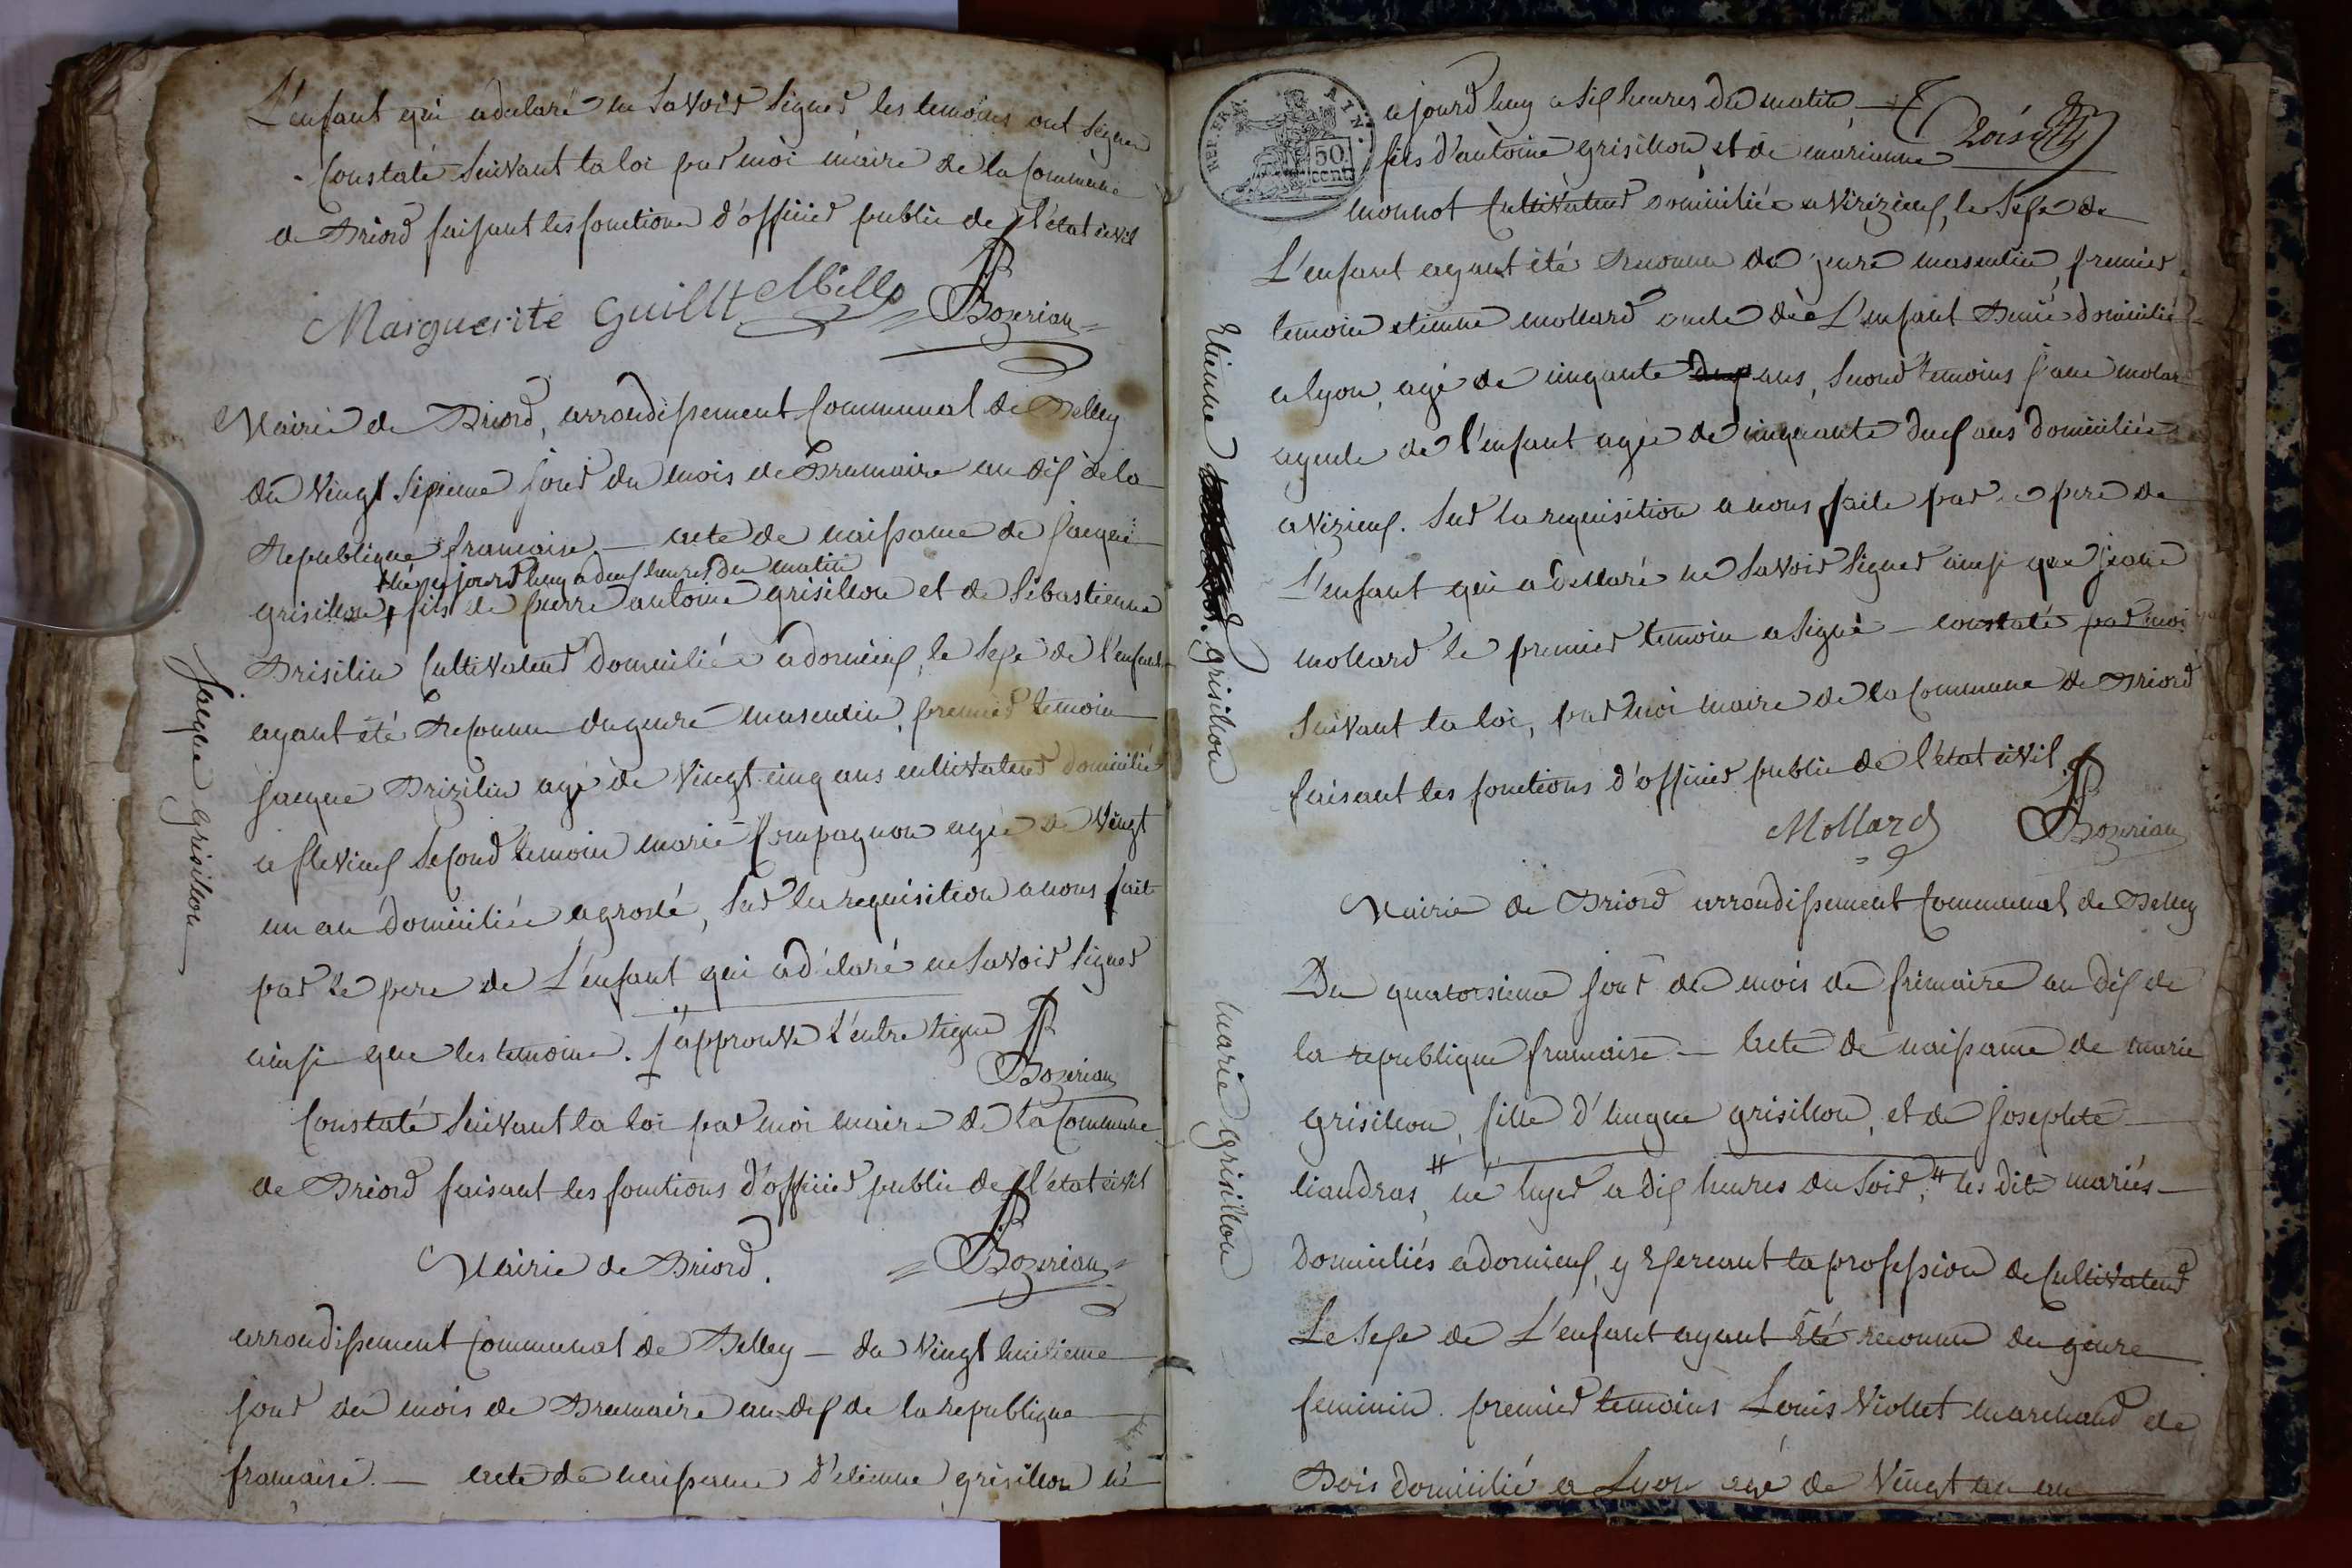 L'enfant qui a declaré ne savoir signer les temoins ont signer
Constaté suivant la loi par moi maire de la commune
de Briord faisant les fonctions d'officier public de l'état civil
Marguerite Guillt Bozerian
Mairie de Briord, arrondissement communal de Belley
du vingt sepieme jour du mois de Brumaire an dix de la
Republique francaise. — acte de naissance de Jacque
né ce jourd'huy a deux heures du matin
grisillon, fils de pierre antoine grisillon et de Sébastienne
Brisilin cultivateur domiciliés a dornieux, le sexe de l'enfant
ayant été reconnu du genre masculin, premier temoin
Jacque Brizilin agé de vingt cinq ans cultivateur domicilié
a flevieux second temoin marie Compagnon agée de vingt
un an domiciliée a groslé, sur la requisition a nous fait
par le pere de L'enfant qui a déclaré ne savoir signer
ainsi que les temoins. J'approuve l'entre ligne
Bozerian
Constaté suivant la loi par moi maire de la commune
de Briord faisant les fonctions d'officier public de l'état civil
Mairie de Briord. Bozerian
arrondissement communal de Belley — du vingt huitieme
jour du mois de Brumaire an dix de la republique
francaise. — acte de naissance d'etienne grisillon né
Jacque grisillon
REP. FRA. 50 cent.
ce jourd'huy a six heures du matin
fils d'antoine grisillon et de marianne
monnot cultivateur domiciliés a Virizieux, le sexe de
L'enfant ayant été reconnu du genre masculin, premier
temoin etienne mollard oncle de L'enfant domicilié
a lyon, agé de cinquante ans, second temoins Jane molar
ayeule de l'enfant agée de cinquante deux ans domiciliée
a Vizieux. sur la requisition a nous faite par le pere de
L'enfant qui a declaré ne savoir signer ainsi que jeane
mollard le premier temoin a signé — constaté par moi
suivant la loi, par moi maire de la commune de Briord
faisant les fonctions d'officier public de l'état civil.
Mollard Bozerian
Mairie de Briord arrondissement communal de Belley
Du quatorsieme jour du mois de frimaire an dix de
la republique francaise. — acte de naissance de marie
grisillon, fille d'hugue grisillon, et de Josephte
liandras, né hyer a dix heures du soir, les dits mariés
domiciliés a dornieux, y exercant la profession de cultivateur
Le sexe de L'enfant ayant été reconnu du genre
feminin. premier temoins Louis Viollet marchand de
Bois domicilié a Lyon agé de vingt un an
Etienne grisillon
marie grisillon